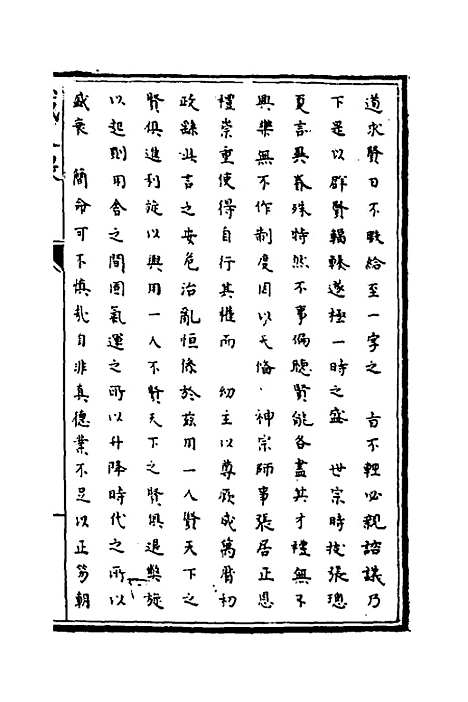 道求賢日不暇給至一字之 旨不輕必親諮議乃
下是以群賢輻輳遂極一時之盛 世宗時拔張璁
夏言異眷殊特然不事偏聽賢能各盡其才禮無不
興樂無不作制度因以大備 神宗師事張居正恩
禮崇重使得自行其權而 幼主以尊強成萬曆初
政繇此言之安危治亂恒係於茲用一人賢天下之
賢俱進利旋以興用一人不賢天下之賢與退弊旋
以起則用舍之間固氣運之所以升降時代之所以
盛衰 簡命可不慎哉自非真德業不足以正笏朝